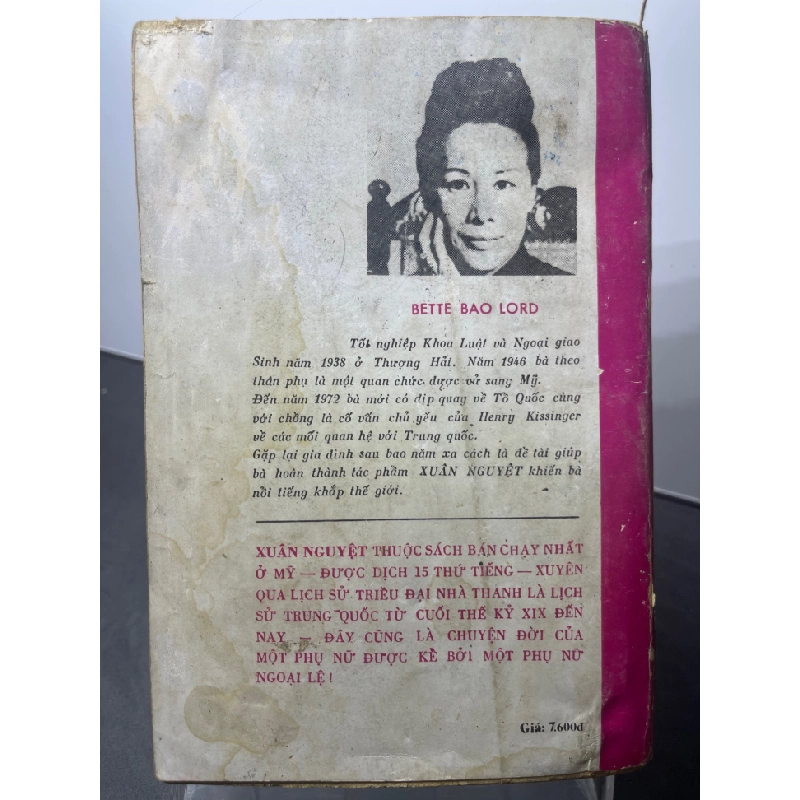 BETTE BAO LORD
Tốt nghiệp Khoa Luật và Ngoại giao
Sinh năm 1938 ở Thượng Hải. Năm 1946 bà theo
thân phụ là một quan chức được cử sang Mỹ.
Đến năm 1972 bà mới có dịp quay về Tổ Quốc cùng
với chồng là cố vấn chủ yếu của Henry Kissinger
về các mối quan hệ với Trung quốc.
Gặp lại gia đình sau bao năm xa cách là đề tài giúp
bà hoàn thành tác phẩm XUÂN NGUYỆT khiến bà
nổi tiếng khắp thế giới.
XUÂN NGUYỆT THUỘC SÁCH BÁN CHẠY NHẤT
Ở MỸ — ĐƯỢC DỊCH 15 THỨ TIẾNG — XUYÊN
QUA LỊCH SỬ TRIỀU ĐẠI NHÀ THANH LÀ LỊCH
SỬ TRUNG QUỐC TỪ CUỐI THẾ KỶ XIX ĐẾN
NAY — ĐÂY CŨNG LÀ CHUYỆN ĐỜI CỦA
MỘT PHỤ NỮ ĐƯỢC KỂ BỞI MỘT PHỤ NỮ
NGOẠI LỆ!
Giá: 7.600đ